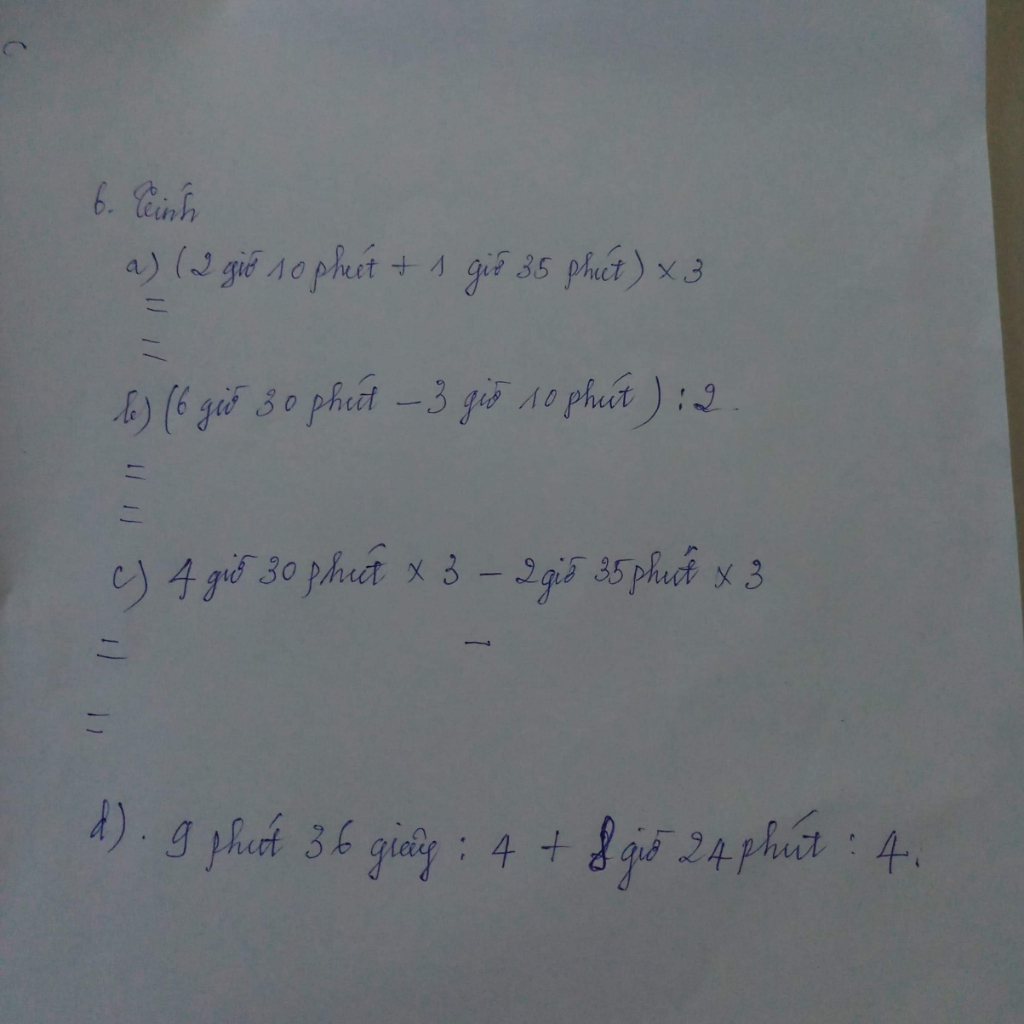 6. Tính
a) (2 giờ 10 phút + 1 giờ 35 phút) × 3
=
=
b) (6 giờ 30 phút – 3 giờ 10 phút) : 2.
=
=
c) 4 giờ 30 phút × 3 – 2 giờ 35 phút × 3
= –
=
d). 9 phút 36 giây : 4 + 8 giờ 24 phút : 4.